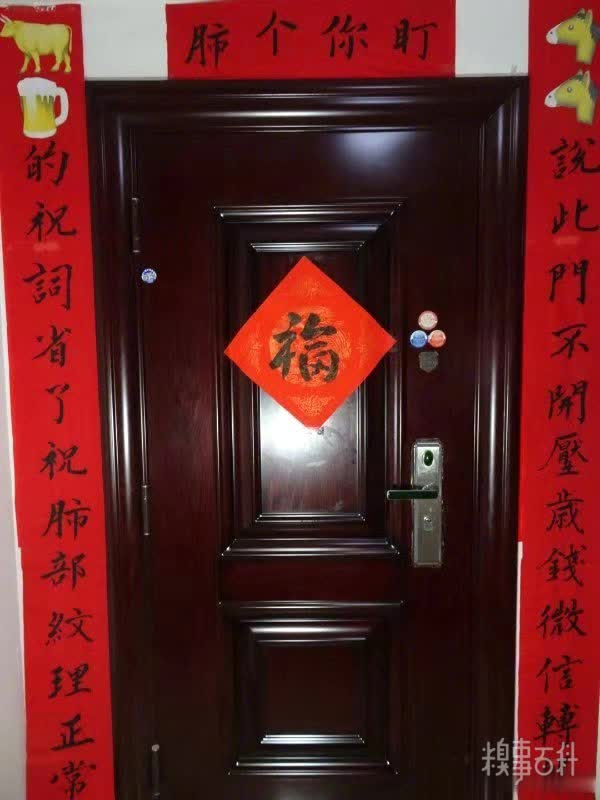 盯你个肺
說此門不開壓歲錢微信轉
的祝詞省了祝肺部紋理正常
福
糗事百科